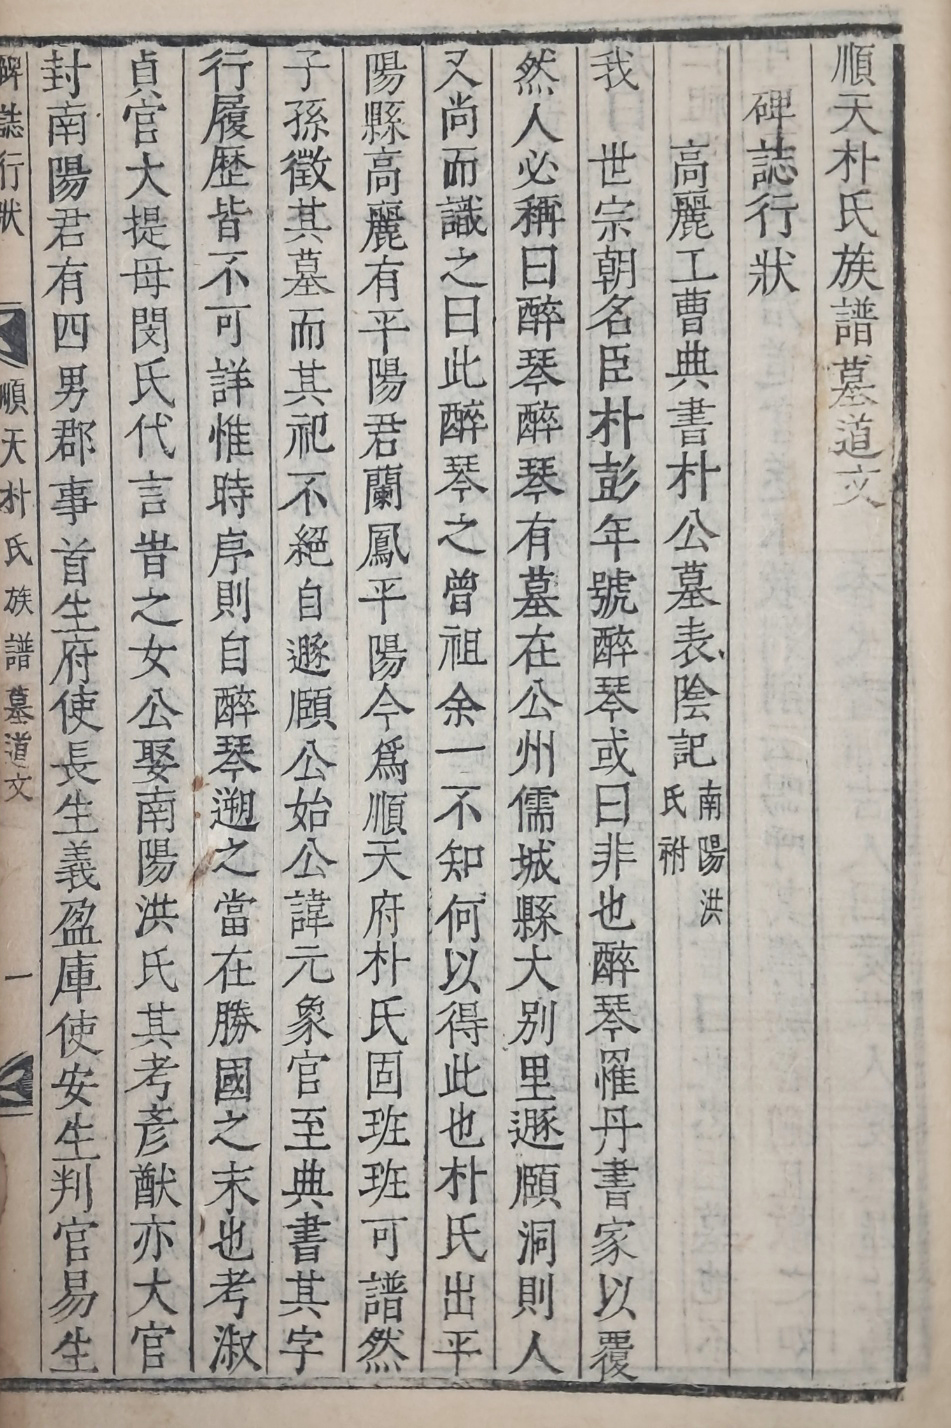 順天朴氏族譜墓道文
碑誌行狀
高麗工曹典書朴公墓表陰記 南陽洪氏祔
我 世宗朝名臣朴彭年號醉琴或曰非也醉琴罹丹書家以覆
然人必稱曰醉琴醉琴有墓在公州儒城縣大別里遯願洞則人
又尚而識之曰此醉琴之曾祖余一不知何以得此也朴氏出平
陽縣高麗有平陽君蘭鳳平陽今爲順天府朴氏固班班可譜然
子孫徵其墓而其祀不絕自遯願公始公諱元象官至典書其字
行履歷皆不可詳惟時序則自醉琴遡之當在勝國之末也考淑
貞官大提母閔氏代言昔之女公娶南陽洪氏其考彥猷亦大官
封南陽君有四男郡事首生府使長生義盈庫使安生判官易生
碑誌行狀 順天朴氏族譜墓道文 一